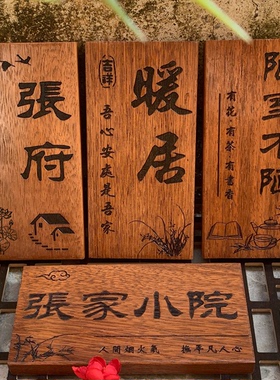 張府
吉祥
暖居
吾心安處是吾家
陋室不陋
有花 有茶 有書香
張家小院
人間烟火氣 撫平凡人心